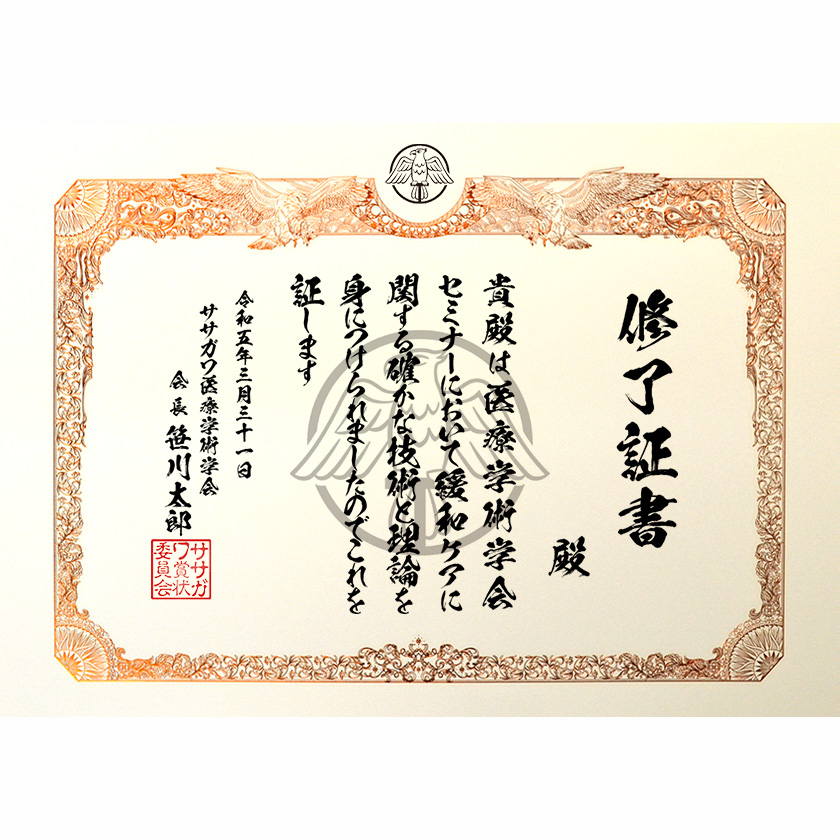 修了証書
殿
貴殿は医療学術学会
セミナーにおいて緩和ケアに
関する確かな技術と理論を
身につけられましたのでこれを
証します
令和五年三月三十一日
ササガワ医療学術学会
会長 笹川太郎
ササガ
ワ賞状
委員会